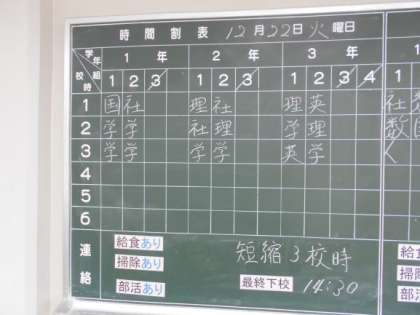 時間割表 12月22日火曜日
学年 1年 2年 3年
校時 組 1 2 3 1 2 3 1 2 3 4
1 国 社 理 社 理 英 社
2 学 学 社 理 学 理 数 国
3 学 学 学 学 英 学
4
5
6
連絡
給食あり 短縮3校時
掃除あり
部活あり 最終下校 14:30
給食
掃除
部活